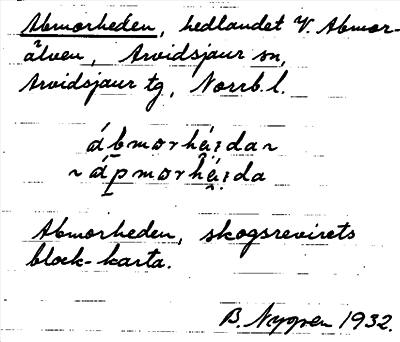 Abmorheden, hedlandet V. Abmor-
älven, Arvidsjaur sn,
Arvidsjaur tg, Norrb. l.
ábmorhé̂i:da ~
~ ápmorhé̂i:da
Abmorheden, skogsrevirets
block-karta.
B. Nygren 1932.